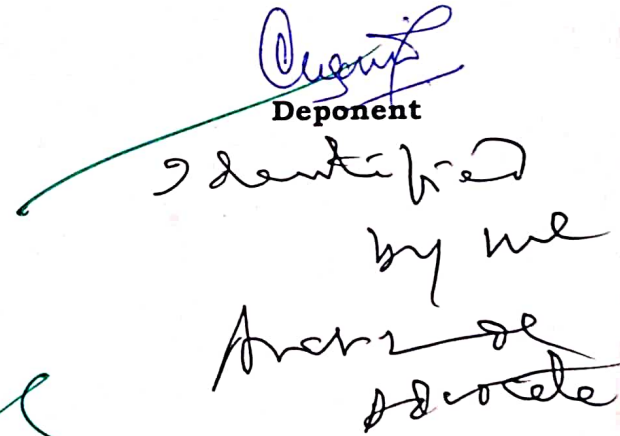 Deponent
Identified
by me
Advocate